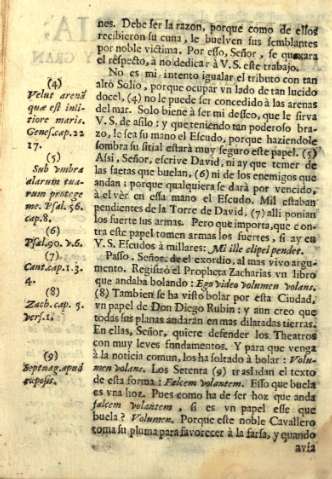 nes. Debe ser la razon, porque como de ellos
recibieron su cuna, le buelven sus semblantes
por noble victima. Por esso, Señor, se quexara
el respeto, a no dedicar à V.S. este trabajo.
No es mi intento igualar el tributo con tan
alto Solio, porque ocupar vn lado de tan lucido
docel, (4) no le puede ser concedido à las arenas
del mar. Solo biene à ser mi desseo, que le sirva
V.S. de asilo; y que teniendo tan poderoso bra-
zo, le sea su mano el Escudo, porque haziendole
sombra su sitial estarà muy seguro este papel. (5)
Assi, Señor, escrive David, ni ay que temer de
las saetas que buelan, (6) ni de los enemigos que
andan: porque qualquiera se darà por vencido,
à el vèr en essa mano el Escudo. Mil estaban
pendientes de la Torre de David, (7) alli ponian
los fuerte sus armas. Pero que importa, que con-
tra este papel tomen armas los fuertes, si ay en
V.S. Escudos à millares: Mi ille clipei pendet.
Passo, Señor, de el exordio, al mas vivo argu-
mento. Registrò el Propheta Zacharias vn libro
que andaba bolando: Ego video volumen volans.
(8) Tambien se ha visto bolar por esta Ciudad,
vn papel de Don Diego Rubin; y aun creo que
todas sus planas andaràn en mas dilatadas tierras.
En ellas, Señor, quiere defender los Theatros
con muy leves fundamentos. Y para que venga
à la noticia comun, los ha soltado à bolar: Volu-
men volans. Los Setenta (9) trasladan el texto
de esta forma: Falcem volantem. Esso que buela
es vna hoz. Pues como ha de ser hoz que anda
falcem volantem, si es vn papel esse que
buela? Volumen. Porque este noble Cavallero
toma su pluma para favorecer à la farsa, y quando
avia
(4)
Velut arenã
quæ est in li-
tiore maris.
Genes. cap. 22
17.
(5)
Sub vmbra
alarum tua-
rum protege
me. Psal. 56.
cap. 8.
(6)
Psal. 90. v. 6.
(7)
Cant. cap. 1. 3.
4.
(8)
Zach. cap. 5.
vers. 1.
(9)
Septuag. apud